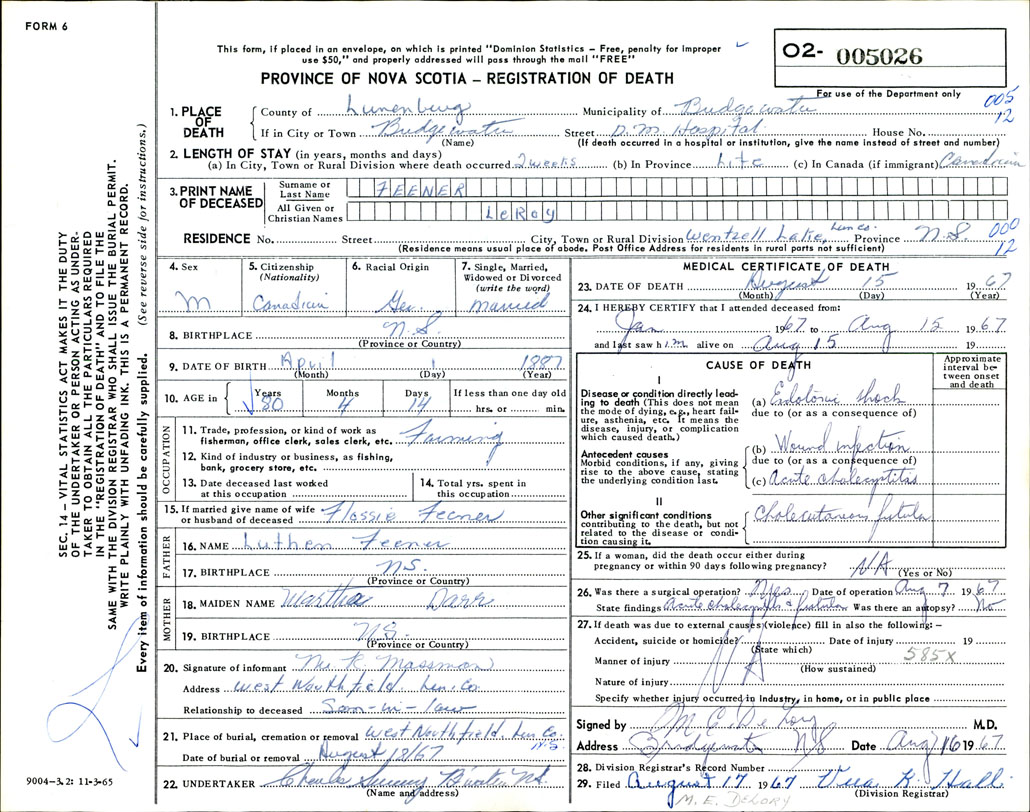 FORM 6
This form, if placed in an envelope, on which is printed "Dominion Statistics – Free, penalty for improper
use $50," and properly addressed will pass through the mail "FREE"
O2- 005026
PROVINCE OF NOVA SCOTIA – REGISTRATION OF DEATH
For use of the Department only
005
12
1. PLACE OF DEATH
County of Lunenburg Municipality of Bridgewater
If in City or Town Bridgewater Street D.M. Hospital House No.
(Name) (If death occurred in a hospital or institution, give the name instead of street and number)
2. LENGTH OF STAY (in years, months and days)
(a) In City, Town or Rural Division where death occurred 2 weeks (b) In Province Life (c) In Canada (if immigrant) Canadian
3. PRINT NAME OF DECEASED
Surname or Last Name FEENER
All Given or Christian Names LeRoy
RESIDENCE No. Street City, Town or Rural Division Wentzell Lake, Lun Co. Province N.S. 000
12
(Residence means usual place of abode. Post Office Address for residents in rural parts not sufficient)
4. Sex
M
5. Citizenship
(Nationality)
Canadian
6. Racial Origin
Ger.
7. Single, Married,
Widowed or Divorced
(write the word)
married
8. BIRTHPLACE N.S.
(Province or Country)
9. DATE OF BIRTH April 1 1887
(Month) (Day) (Year)
10. AGE in Years Months Days If less than one day old
80 4 14 hrs. or min.
OCCUPATION
11. Trade, profession, or kind of work as
fisherman, office clerk, sales clerk, etc. Farming
12. Kind of industry or business, as fishing,
bank, grocery store, etc.
13. Date deceased last worked
at this occupation
14. Total yrs. spent in
this occupation
15. If married give name of wife
or husband of deceased Flossie Feener
FATHER
16. NAME Luthen Feener
17. BIRTHPLACE N.S.
(Province or Country)
MOTHER
18. MAIDEN NAME Martha Darr
19. BIRTHPLACE N.S.
(Province or Country)
20. Signature of informant R. Massman
Address West Northfield Lun. Co.
Relationship to deceased Son-in-law
21. Place of burial, cremation or removal West Northfield, Lun Co.
N.S.
Date of burial or removal August 18/67
22. UNDERTAKER Charles
(Name and address)
MEDICAL CERTIFICATE OF DEATH
23. DATE OF DEATH August 15 1967
(Month) (Day) (Year)
24. I HEREBY CERTIFY that I attended deceased from:
Jan 1967 to Aug 15 1967
and last saw him alive on Aug 15 19
CAUSE OF DEATH
Approximate
interval be-
tween onset
and death
I
Disease or condition directly lead-
ing to death (This does not mean
the mode of dying, e.g., heart fail-
ure, asthenia, etc. It means the
disease, injury, or complication
which caused death.)
(a) shock
due to (or as a consequence of)
Antecedent causes
Morbid conditions, if any, giving
rise to the above cause, stating
the underlying condition last.
(b) Wound infection
due to (or as a consequence of)
(c) Acute cholecystitis
II
Other significant conditions
contributing to the death, but not
related to the disease or condi-
tion causing it.
Cholecutaneous fistula
25. If a woman, did the death occur either during
pregnancy or within 90 days following pregnancy? NA
(Yes or No)
26. Was there a surgical operation? Yes Date of operation Aug 7 1967
State findings Acute cholecystitis & fistula Was there an autopsy? No
27. If death was due to external causes (violence) fill in also the following: –
Accident, suicide or homicide? Date of injury 19
(State which)
585X
Manner of injury
(How sustained)
NA
Nature of injury
Specify whether injury occurred in industry, in home, or in public place
Signed by M. E. DeLory M.D.
Address Bridgewater NS Date Aug 16 1967
28. Division Registrar's Record Number
29. Filed August 17 1967 K. Hall
(Division Registrar)
M. E. DELORY
SEC. 14 – VITAL STATISTICS ACT MAKES IT THE DUTY
OF THE UNDERTAKER OR PERSON ACTING AS UNDER-
TAKER TO OBTAIN ALL THE PARTICULARS REQUIRED
IN THE "REGISTRATION OF DEATH" AND TO FILE THE
SAME WITH THE DIVISION REGISTRAR WHO SHALL ISSUE THE BURIAL PERMIT.
WRITE PLAINLY WITH UNFADING INK. THIS IS A PERMANENT RECORD.
Every item of information should be carefully supplied. (See reverse side for instructions.)
9004-3.2: 11-3-65